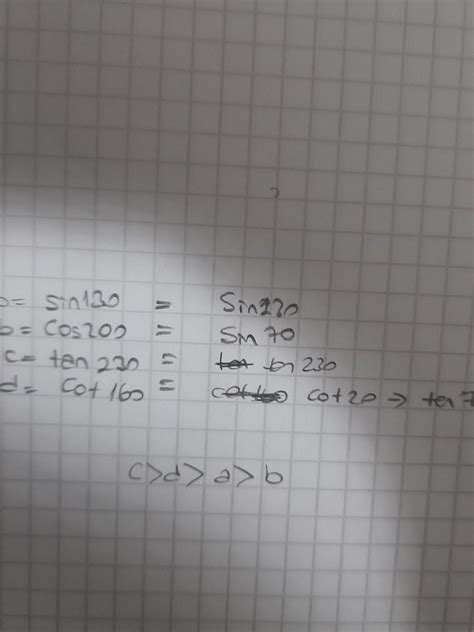 = sin130 = Sin220
b= Cos200 = Sin 70
c= ten 230 = 230
d= Cot 160 = cot 20 → ten 7
c>d>a>b